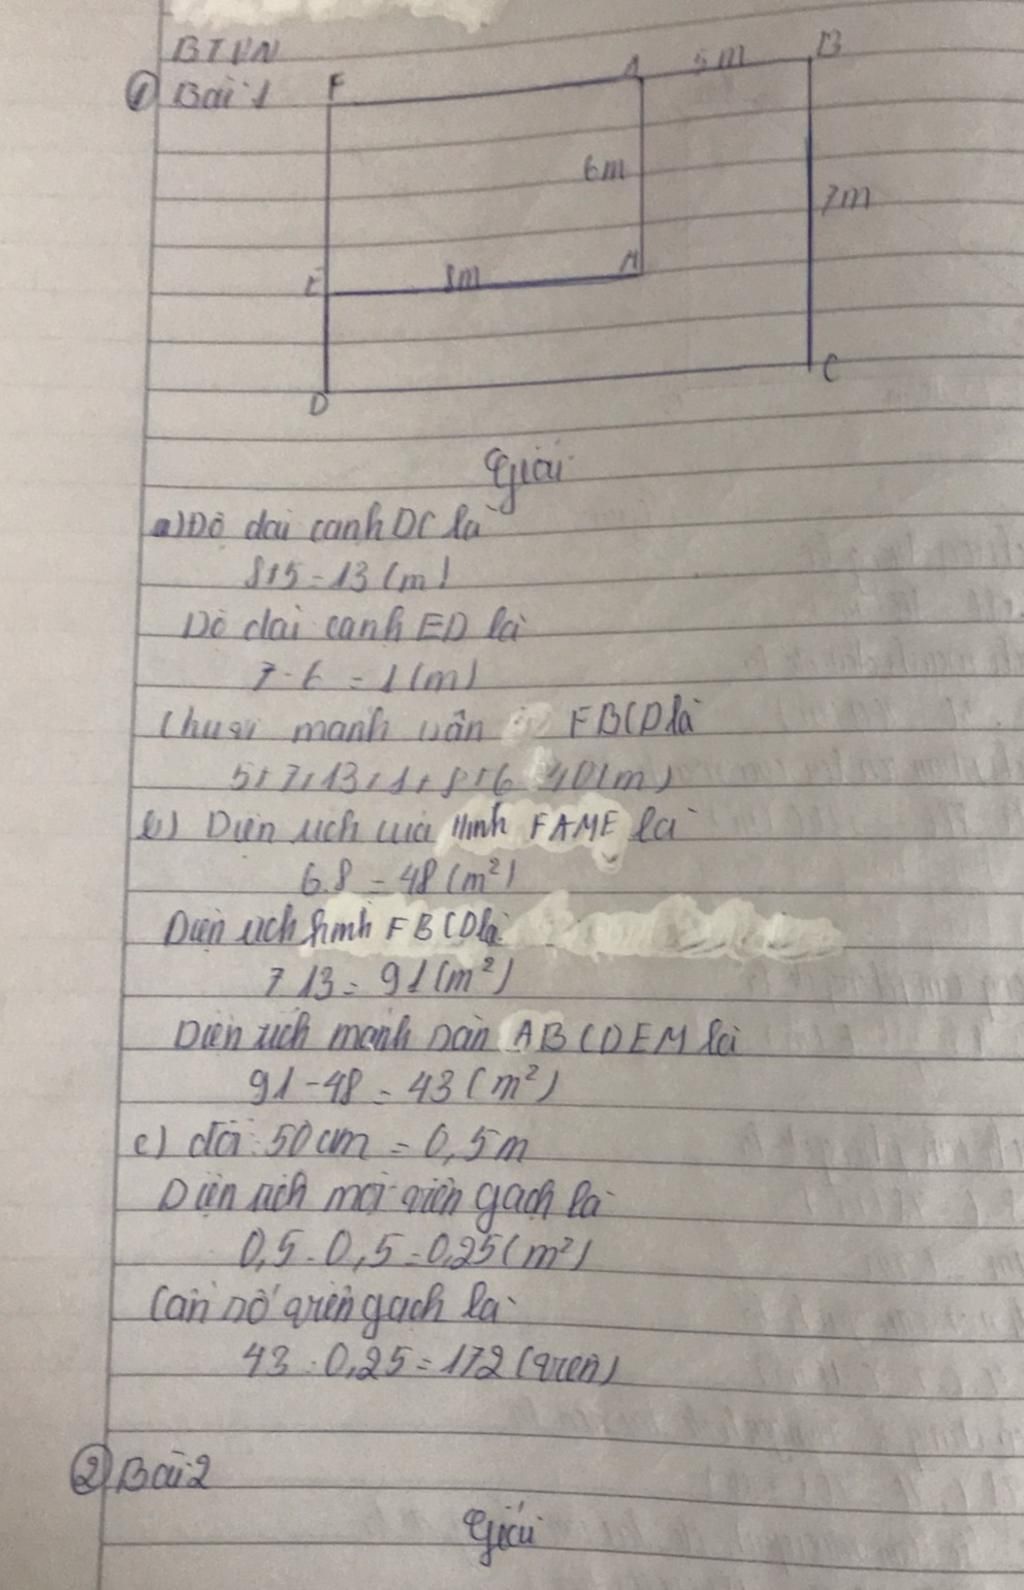 BTVN
① Bài 1
F A 5m B
6m
7m
E 8m M
D C
Giải
a) Độ dài cạnh DC là
8+5=13 (m)
Độ dài cạnh ED là
7-6=1 (m)
Chu vi mảnh sân FBCD là
5+7+13+1+8+6=40(m)
b) Diện tích của hình FAME là
6.8=48 (m²)
Diện tích hình FBCD là
7.13=91(m²)
Diện tích mảnh sân ABCDEM là
91-48=43 (m²)
c) đổi 50cm = 0,5m
Diện tích mỗi viên gạch là
0,5.0,5=0,25(m²)
Cần số viên gạch là
43:0,25=172 (viên)
② Bài 2
Giải